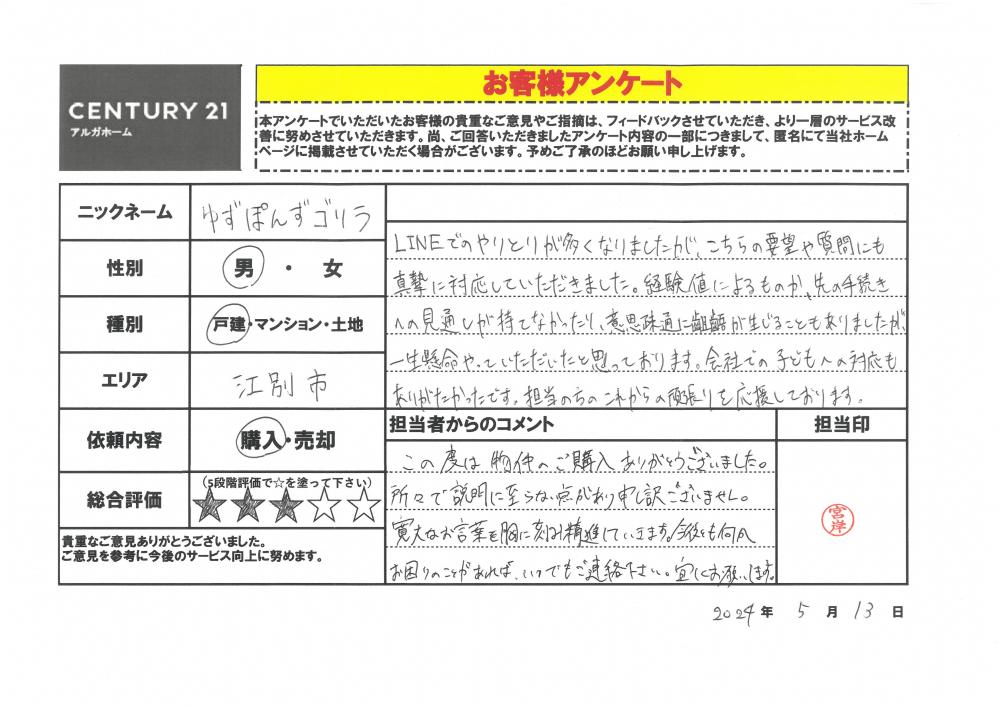 お客様アンケート
CENTURY 21
アルガホーム
本アンケートでいただいたお客様の貴重なご意見やご指摘は、フィードバックさせていただき、より一層のサービス改
善に努めさせていただきます。尚、ご回答いただきましたアンケート内容の一部につきまして、匿名にて当社ホーム
ページに掲載させていただく場合がございます。予めご了承のほどお願い申し上げます。
ニックネーム
ゆずぽんずゴリラ
性別
男・女
種別
戸建・マンション・土地
エリア
江別市
依頼内容
購入・売却
総合評価
(5段階評価で☆を塗って下さい)
★★★☆☆
貴重なご意見ありがとうございました。
ご意見を参考に今後のサービス向上に努めます。
LINEでのやりとりが多くなりましたが、こちらの要望や質問にも
真摯に対応していただきました。経験値によるものか、先の手続き
への見通しが持てなかったり、意思疎通に齟齬が生じることもありましたが、
一生懸命やっていただいたと思っております。会社での子どもへの対応も
ありがたかったです。担当の方のこれからの頑張りを応援しております。
担当者からのコメント
担当印
この度は物件のご購入ありがとうございました。
所々で説明に至らない点があり申し訳ございません。
寛大なお言葉を胸に刻み精進していきます。今後とも何か
お困りのことがあれば、いつでもご連絡下さい。宜しくお願いします。
宮岸
2024年 5月 13日